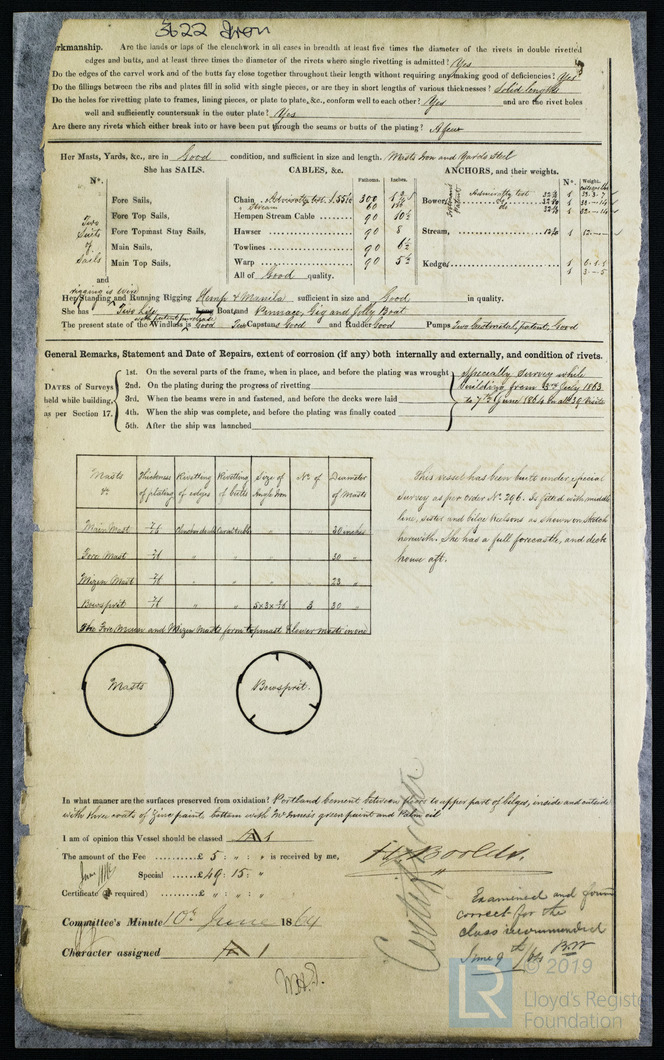 3622 Iron
rkmanship. Are the lands or laps of the clenchwork in all cases in breadth at least five times the diameter of the rivets in double rivetted
edges and butts, and at least three times the diameter of the rivets where single rivetting is admitted? Yes
Do the edges of the carvel work and of the butts fay close together throughout their length without requiring any making good of deficiencies? Yes
Do the fillings between the ribs and plates fill in solid with single pieces, or are they in short lengths of various thicknesses? Solid lengths
Do the holes for rivetting plate to frames, lining pieces, or plate to plate, &c., conform well to each other? Yes and are the rivet holes
well and sufficiently countersunk in the outer plate? Yes
Are there any rivets which either break into or have been put through the seams or butts of the plating? A few
Her Masts, Yards, &c., are in Good condition, and sufficient in size and length. Masts Iron and Yards Steel
She has SAILS. CABLES, &c. ANCHORS, and their weights.
N°. Fathoms. Inches. N°. Weight.
Fore Sails, Chain Admiralty test 300
Stream 60
Fore Top Sails, Hempen Stream Cable 90 10½
Fore Topmast Stay Sails, Hawser 90 8 Stream, 1 12
Main Sails, Towlines 90 6½
Main Top Sails, Warp 90 5½ Kedges
Two Suits of Sails
and All of Good quality.
rigging is Wire
Her Standing and Running Rigging Hemp & Manila sufficient in size and Good in quality.
She has Two Life Long Boat and Pinnace, Gig and Jolly Boat
with patent purchase
The present state of the Windlass is Good Two Capstans Good and Rudder Good Pumps Two patent, Good
General Remarks, Statement and Date of Repairs, extent of corrosion (if any) both internally and externally, and condition of rivets.
DATES of Surveys held while building, as per Section 17.
1st. On the several parts of the frame, when in place, and before the plating was wrought
2nd. On the plating during the progress of rivetting
3rd. When the beams were in and fastened, and before the decks were laid
4th. When the ship was complete, and before the plating was finally coated
5th. After the ship was launched
Specially Survey while
building from July 1863
to 7th June 1864 in all 39 Visits
Masts &c Thickness of plating Rivetting of edges Rivetting of butts Size of Angle Iron N° of Diameter of Masts
Main Mast 30 inches
Fore Mast " " " " 30 "
Mizen Mast " " " " 23 "
Bowsprit " " 3 30 "
The Fore Main and Mizen Masts form topmast & lower masts in one
This vessel has been built under special
Survey as per order No. 296. Is fitted with middle
line, sister and bilge keelsons as shown on sketch
herewith. She has a full forecastle, and deck
house aft.
Masts
Bowsprit.
In what manner are the surfaces preserved from oxidation? Portland Cement between floors to upper part of bilges, inside and outside
with three coats of Zinc paint, bottom with McInness green paint and Palm oil
I am of opinion this Vessel should be classed A 1
The amount of the Fee .........£ 5 : " : " is received by me,
Special ......£49 : 15 : "
Certificate (if required) .......£ " : " : "
Committee's Minute 10th June 1864
Character assigned A 1
Examined and found
correct for the
class recommended
June 9th /64 B.W
© 2019
LR
Lloyd's Register
Foundation